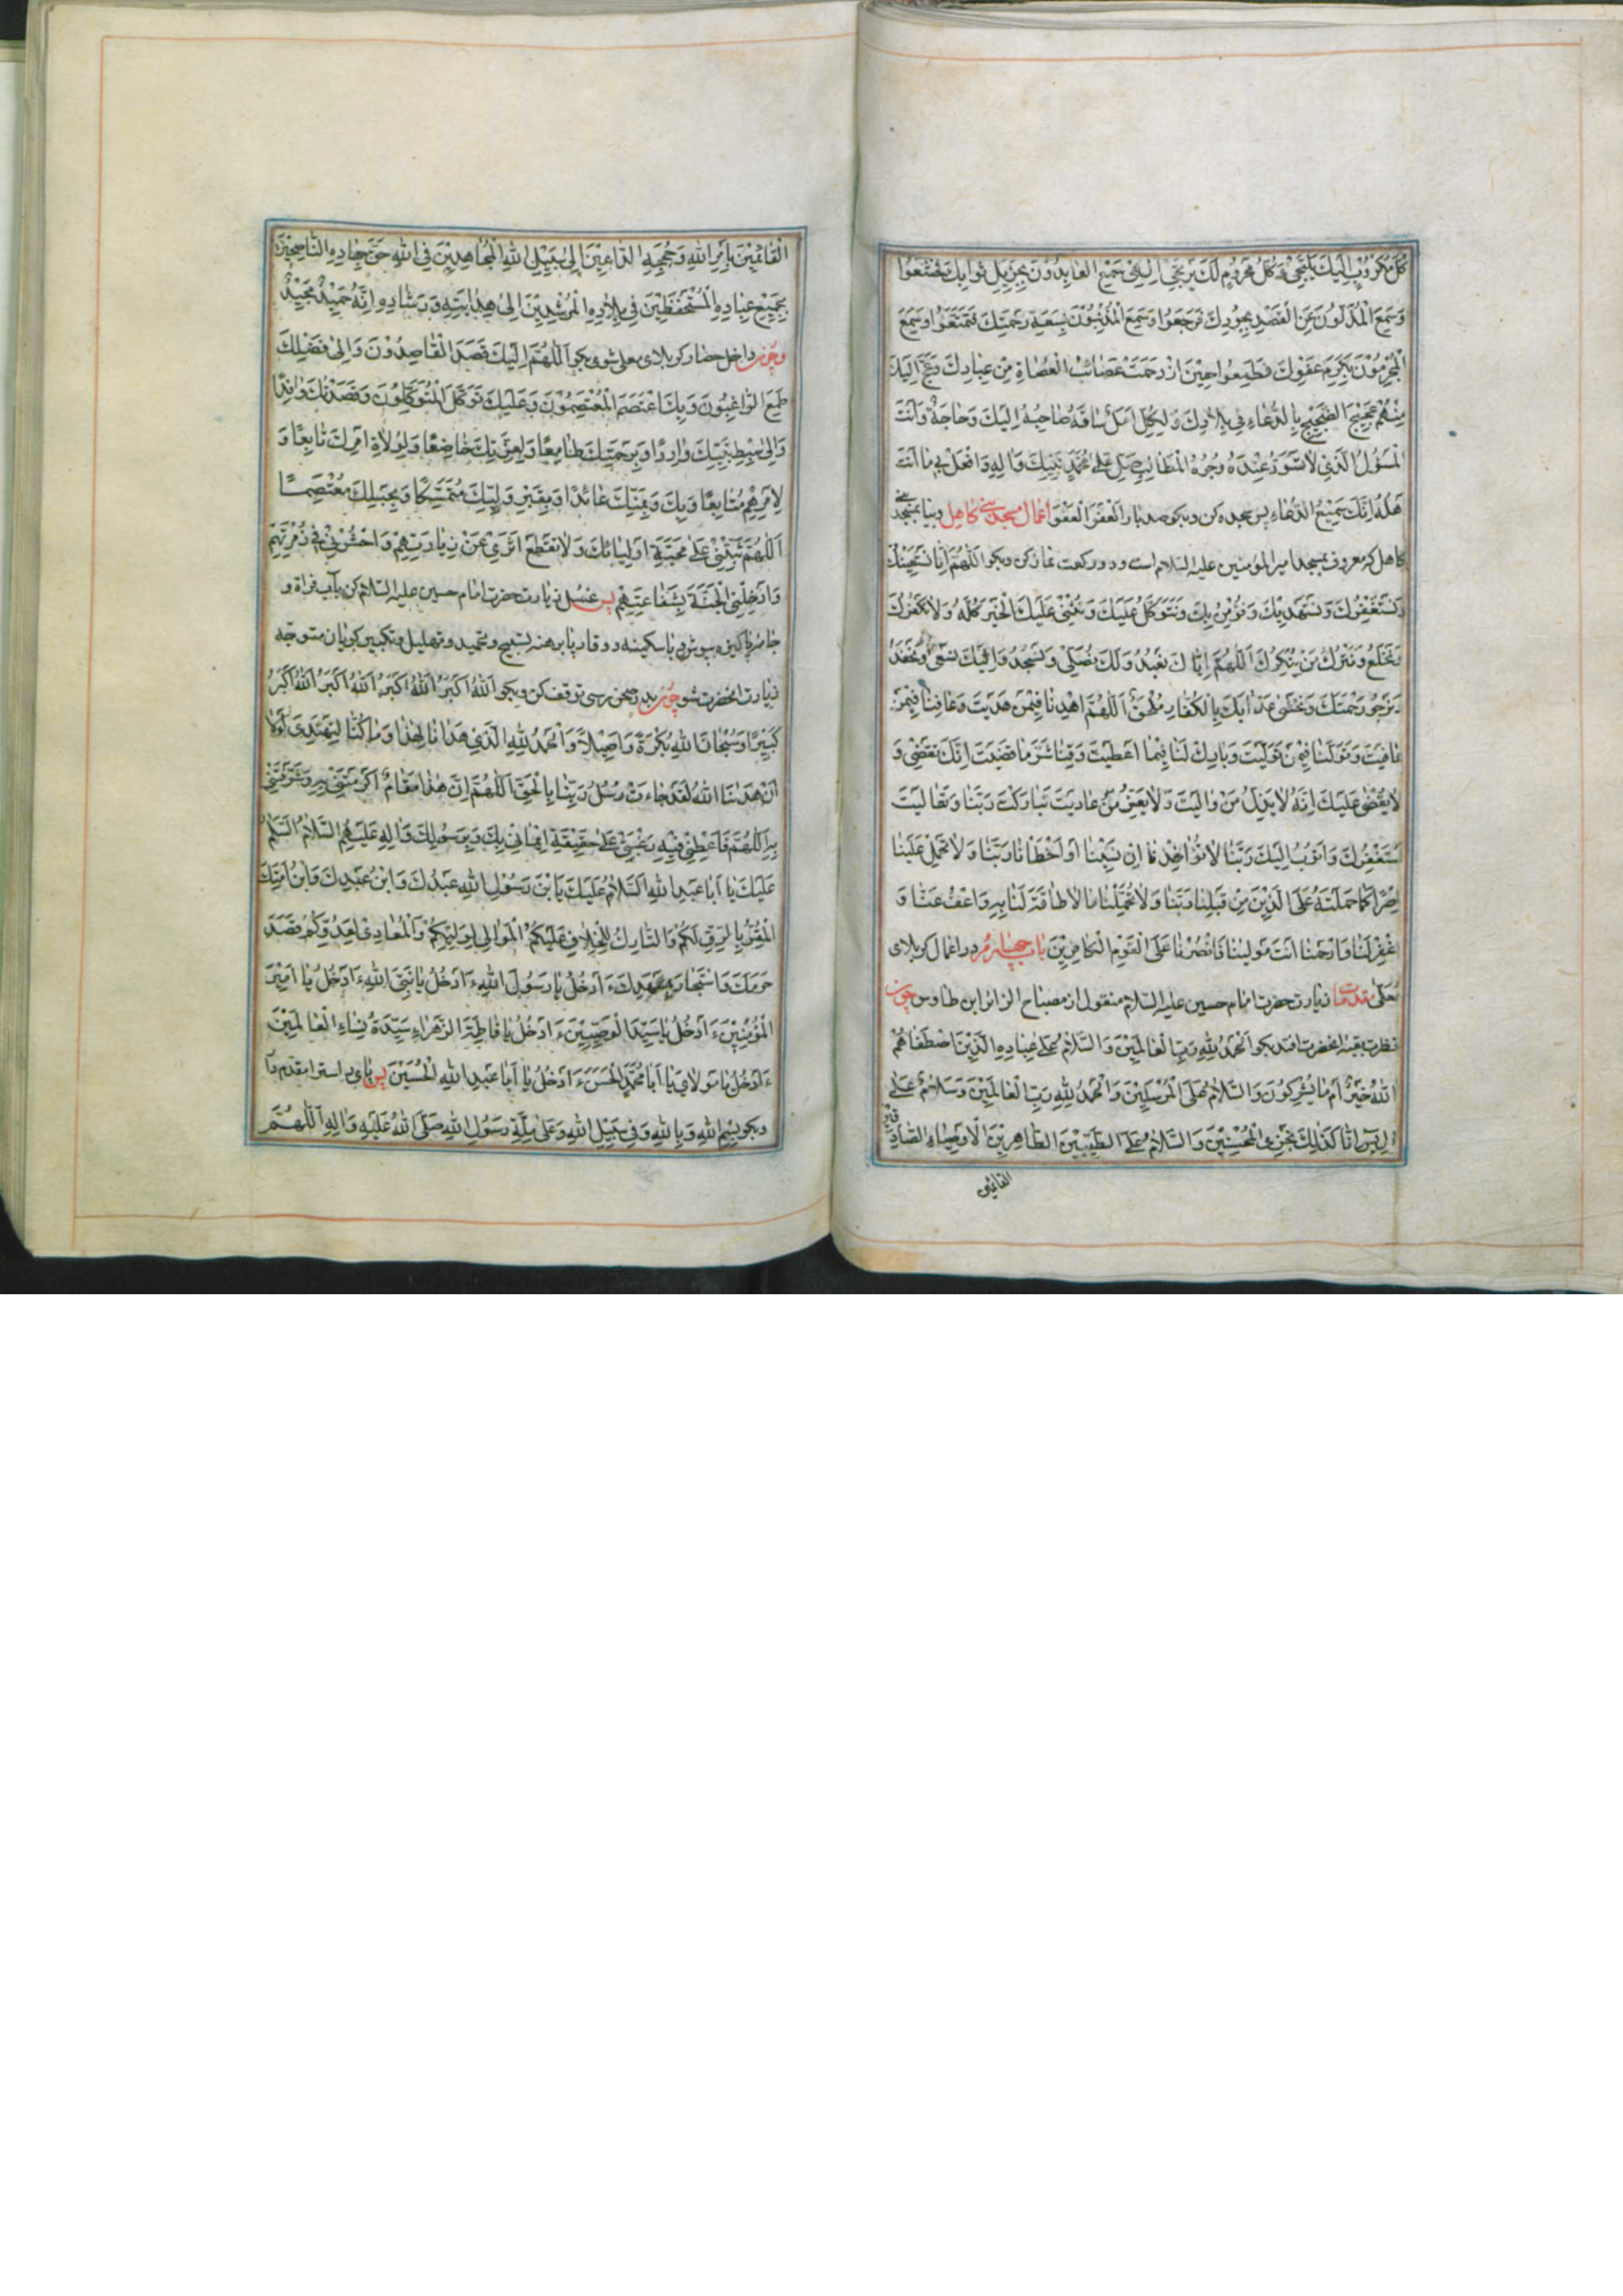 كُلُّ مَكْرُوبٍ إِلَيْكَ يَلْتَجِئُ وَكُلُّ مَحْرُومٍ لَكَ يَرْتَجِي إِلٰهِي سَمِعَ الْعَابِدُونَ بِجَزِيلِ ثَوَابِكَ فَخَشَعُوا
وَسَمِعَ الْمُذْلُونَ عَنِ الْقَصْدِ بِجُودِكَ فَرَجَعُوا وَسَمِعَ الْمُذْنِبُونَ بِسَعَةِ رَحْمَتِكَ فَتَمَتَّعُوا وَسَمِعَ
الْمُجْرِمُونَ بِكَرَمِ عَفْوِكَ فَطَمِعُوا حِينَ ازْدَحَمَتْ عَصَائِبُ الْعُصَاةِ مِنْ عِبَادِكَ وَعَجَّ إِلَيْكَ
مِنْهُمْ عَجِيجَ الضَّجِيجِ بِالدُّعَاءِ فِي بِلَادِكَ وَلِكُلٍّ أَمَلٌ سَاقَهُ صَاحِبُهُ إِلَيْكَ وَحَاجَةٌ وَأَنْتَ
الْمَسْؤُلُ الَّذِي لَا تَسْوَدُّ عِنْدَهُ وُجُوهُ الْمَطَالِبِ صَلِّ عَلَى مُحَمَّدٍ نَبِيِّكَ وَآلِهِ وَافْعَلْ بِي مَا أَنْتَ
أَهْلُهُ إِنَّكَ سَمِيعُ الدُّعَاءِ پس سجده کن و بکو صد بار الْعَفْوَ الْعَفْوَ اعمال مسجد بنی کاهل و بیا بمسجد بنی
کاهل که معروف بمسجد امیر المؤمنین علیه السلام است و دو رکعت نماز کن و بکو اَللّٰهُمَّ إِنَّا نَسْتَعِينُكَ
وَنَسْتَغْفِرُكَ وَنَسْتَهْدِيكَ وَنُؤْمِنُ بِكَ وَنَتَوَكَّلُ عَلَيْكَ وَنُثْنِي عَلَيْكَ الْخَيْرَ كُلَّهُ وَلَا نَكْفُرُكَ
وَنَخْلَعُ وَنَتْرُكُ مَنْ يُنْكِرُكَ اَللّٰهُمَّ إِيَّاكَ نَعْبُدُ وَلَكَ نُصَلِّي وَنَسْجُدُ وَإِلَيْكَ نَسْعَى وَنَحْفِدُ
وَنَرْجُو رَحْمَتَكَ وَنَخْشَى عَذَابَكَ بِالْكُفَّارِ مُلْحَقٌ اَللّٰهُمَّ اهْدِنَا فِيمَنْ هَدَيْتَ وَعَافِنَا فِيمَنْ
عَافَيْتَ وَتَوَلَّنَا فِيمَنْ تَوَلَّيْتَ وَبَارِكْ لَنَا فِيمَا أَعْطَيْتَ وَقِنَا شَرَّ مَا قَضَيْتَ إِنَّكَ تَقْضِي وَ
لَا يُقْضَى عَلَيْكَ إِنَّهُ لَا يَذِلُّ مَنْ وَالَيْتَ وَلَا يَعِزُّ مَنْ عَادَيْتَ تَبَارَكْتَ رَبَّنَا وَتَعَالَيْتَ
أَسْتَغْفِرُكَ وَأَتُوبُ إِلَيْكَ رَبَّنَا لَا تُؤَاخِذْنَا إِنْ نَسِينَا أَوْ أَخْطَأْنَا رَبَّنَا وَلَا تَحْمِلْ عَلَيْنَا
إِصْرًا كَمَا حَمَلْتَهُ عَلَى الَّذِينَ مِنْ قَبْلِنَا رَبَّنَا وَلَا تُحَمِّلْنَا مَا لَا طَاقَةَ لَنَا بِهِ وَاعْفُ عَنَّا وَ
اغْفِرْ لَنَا وَارْحَمْنَا أَنْتَ مَوْلَينَا فَانْصُرْنَا عَلَى الْقَوْمِ الْكَافِرِينَ باب چهارم در اعمال کربلای
معلی مقدمات زیارت حضرت امام حسین علیه السلام منقول از مصباح الزائر ابن طاوس چون
نظرت بقبه انحضرت افتد بکو اَلْحَمْدُ لِلّٰهِ رَبِّ الْعَالَمِينَ وَالسَّلَامُ عَلَى عِبَادِهِ الَّذِينَ اصْطَفَاهُمْ
اَللّٰهُ خَيْرٌ أَمْ مَا يُشْرِكُونَ وَالسَّلَامُ عَلَى الْمُرْسَلِينَ وَالْحَمْدُ لِلّٰهِ رَبِّ الْعَالَمِينَ وَسَلَامٌ عَلَى
إِلْ يَاسِينَ إِنَّا كَذٰلِكَ نَجْزِي الْمُحْسِنِينَ وَالسَّلَامُ عَلَى الطَّيِّبِينَ الطَّاهِرِينَ الْأَوْصِيَاءِ الصَّادِقِينَ
القائمین
الْقَائِمِينَ بِأَمْرِ اللّٰهِ وَحُجَجِهِ الدَّاعِينَ إِلَى سَبِيلِ اللّٰهِ الْمُجَاهِدِينَ فِي اللّٰهِ حَقَّ جِهَادِهِ النَّاصِحِينَ
بِجَمِيعِ عِبَادِهِ الْمُسْتَحْفَظِينَ فِي بِلَادِهِ الْمُرْشِدِينَ إِلَى هِدَايَتِهِ وَرَشَادِهِ إِنَّهُ حَمِيدٌ مَجِيدٌ
و چون داخل حصار کربلای معلی شوی بکو اَللّٰهُمَّ إِلَيْكَ قَصَدَ الْقَاصِدُونَ وَإِلَى فَضْلِكَ
طَمِعَ الرَّاغِبُونَ وَبِكَ اعْتَصَمَ الْمُعْتَصِمُونَ وَعَلَيْكَ تَوَكَّلَ الْمُتَوَكِّلُونَ وَقَصَدْتُكَ وَافِدًا
وَإِلَى سِبْطِ نَبِيِّكَ وَارِدًا وَبِرَحْمَتِكَ طَامِعًا وَلِعِزَّتِكَ خَاضِعًا وَلِوُلَاةِ أَمْرِكَ تَابِعًا وَ
لِأَمْرِهِمْ مُتَابِعًا وَبِكَ وَبِمَنِّكَ عَائِذًا وَبِقَبْرِ وَلِيِّكَ مُتَمَسِّكًا وَبِحَبْلِكَ مُعْتَصِمًا
اَللّٰهُمَّ ثَبِّتْنِي عَلَى مَحَبَّةِ أَوْلِيَائِكَ وَلَا تَقْطَعْ أَثَرِي عَنْ زِيَارَتِهِمْ وَاحْشُرْنِي فِي زُمْرَتِهِمْ
وَأَدْخِلْنِي الْجَنَّةَ بِشَفَاعَتِهِمْ پس غسل زیارت حضرت امام حسین علیه السلام کن بآب فراة و
جامه پاکیزه بپوش و با سکینه و وقار پا برهنه تسبیح و تحمید و تهلیل و تکبیر کویان متوجه
زیارت انحضرت شو چون بدر صحن رسی توقف کن و بکو اَللّٰهُ أَكْبَرُ اَللّٰهُ أَكْبَرُ اَللّٰهُ أَكْبَرُ اَللّٰهُ أَكْبَرُ
كَبِيرًا وَسُبْحَانَ اللّٰهِ بُكْرَةً وَأَصِيلًا وَالْحَمْدُ لِلّٰهِ الَّذِي هَدَانَا لِهٰذَا وَمَا كُنَّا لِنَهْتَدِيَ لَوْلَا
أَنْ هَدَانَا اللّٰهُ لَقَدْ جَاءَتْ رُسُلُ رَبِّنَا بِالْحَقِّ اَللّٰهُمَّ إِنَّ هٰذَا مَقَامٌ أَكْرَمْتَنِي بِهِ وَشَرَّفْتَنِي
بِهِ اَللّٰهُمَّ فَأَعْطِنِي فِيهِ رَغْبَتِي عَلَى حَقِيقَةِ إِيمَانِي بِكَ وَبِرَسُولِكَ وَآلِهِ عَلَيْهِمُ السَّلَامُ السَّلَامُ
عَلَيْكَ يَا أَبَا عَبْدِ اللّٰهِ السَّلَامُ عَلَيْكَ يَا بْنَ رَسُولِ اللّٰهِ عَبْدُكَ وَابْنُ عَبْدِكَ وَابْنُ أَمَتِكَ
الْمُقِرُّ بِالرِّقِّ لَكُمْ وَالتَّارِكُ لِلْخِلَافِ عَلَيْكُمْ الْمُوَالِي لِوَلِيِّكُمْ وَالْمُعَادِي لِعَدُوِّكُمْ قَصَدَ
حَرَمَكَ وَاسْتَجَارَ بِمَشْهَدِكَ ءَأَدْخُلُ يَا رَسُولَ اللّٰهِ ءَأَدْخُلُ يَا نَبِيَّ اللّٰهِ ءَأَدْخُلُ يَا أَمِيرَ
الْمُؤْمِنِينَ ءَأَدْخُلُ يَا سَيِّدَ الْوَصِيِّينَ ءَأَدْخُلُ يَا فَاطِمَةَ الزَّهْرَاءِ سَيِّدَةَ نِسَاءِ الْعَالَمِينَ
ءَأَدْخُلُ يَا مَوْلَايَ يَا أَبَا مُحَمَّدٍ الْحَسَنَ ءَأَدْخُلُ يَا أَبَا عَبْدِ اللّٰهِ الْحُسَيْنَ پس پای راست را مقدم دار
و بکو بِسْمِ اللّٰهِ وَبِاللّٰهِ وَفِي سَبِيلِ اللّٰهِ وَعَلَى مِلَّةِ رَسُولِ اللّٰهِ صَلَّى اللّٰهُ عَلَيْهِ وَآلِهِ اَللّٰهُمَّ